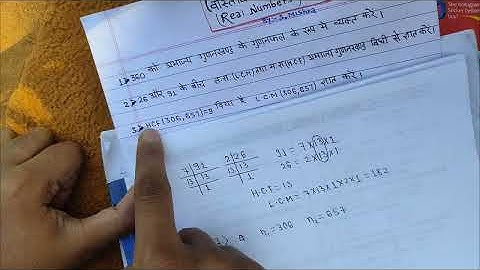 (वास्तविक
(Real Numbers
By:-S. Mishra
1➤ 360 को अभाज्य गुणनखण्ड के गुणनफल के रूप में व्यक्त करें।
2➤ 26 और 91 के बीच (LCM) तथा (HCF) अभाज्य गुणनखण्ड विधी से ज्ञात करें।
3➤ HCF(306,657)=9 दिया है L.C.M(306,657) ज्ञात करें।
7 91 2 26 91 = 7×13×1
13 13 13 13 26 = 2×13×1
1 1
H.C.F = 13
L.C.M = 7×13×1×2×1 = 182
n₁=306 n₂=657